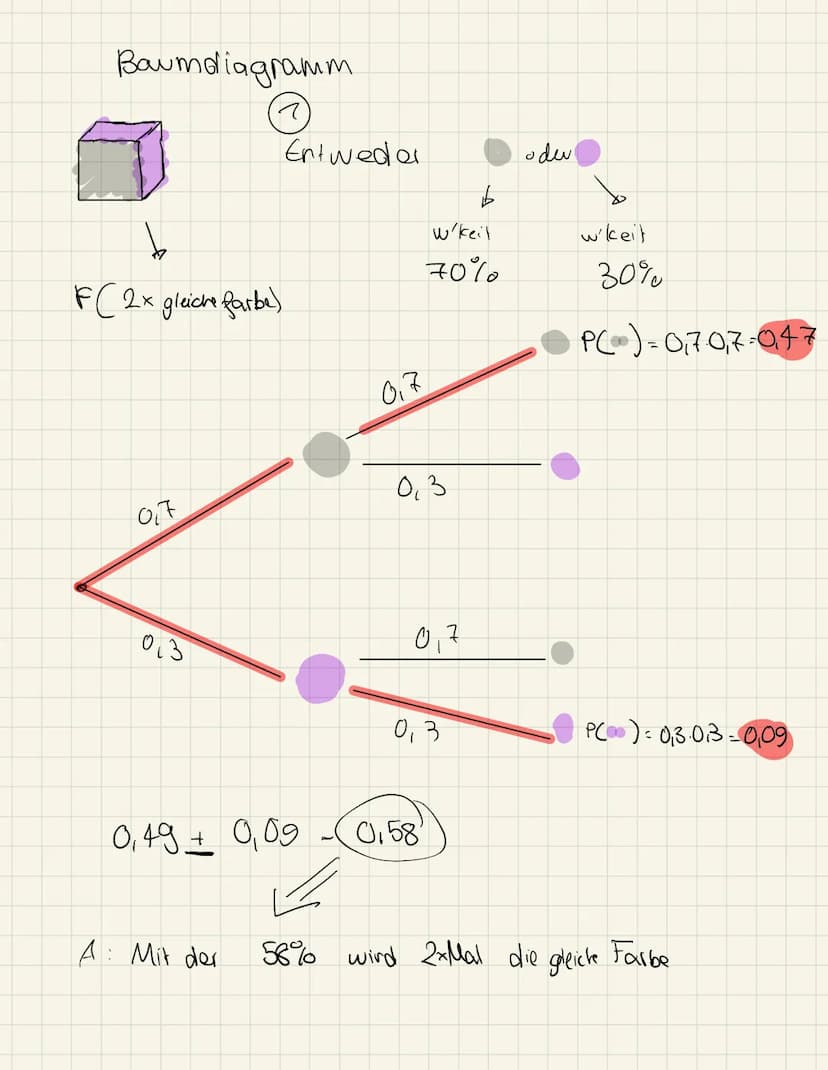 Baumdiagramm
1
Entweder oder
w'keit w'keit
70% 30%
F( 2x gleiche farbe)
P( ) = 0,7·0,7=0,47
0,7
0,3
0,7
0,7
0,3
0,3
P( ) = 0,3·0,3=0,09
0,49 + 0,09 = 0,58
A: Mit der 58% wird 2xMal die gleiche Farbe